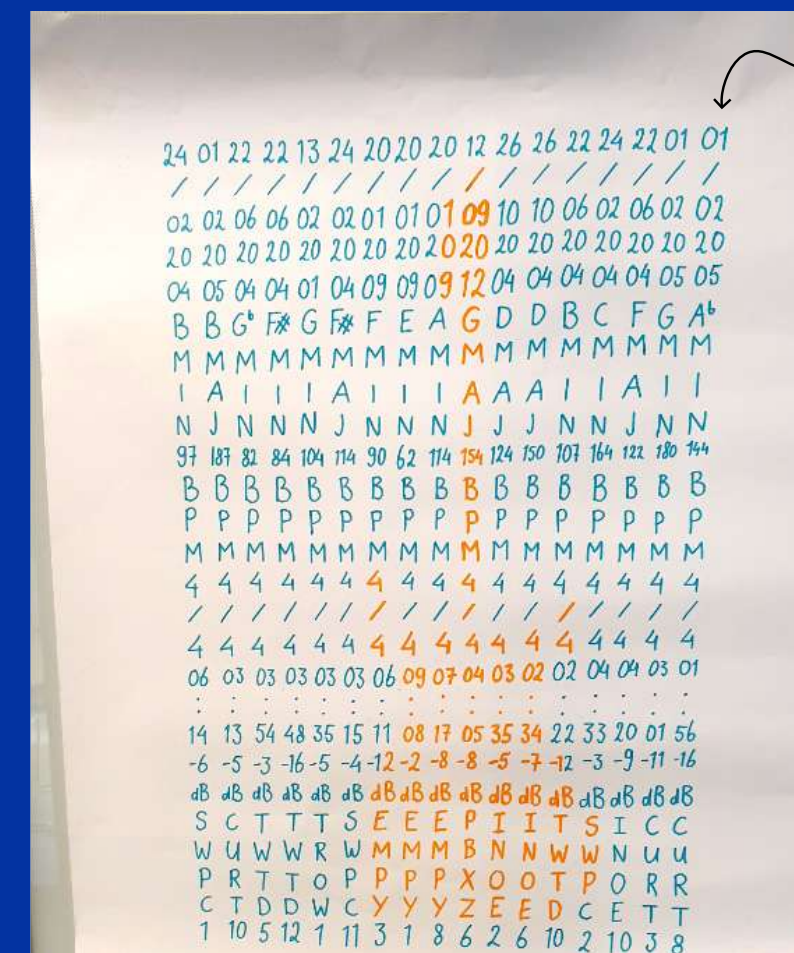 24 01 22 22 13 24 20 20 20 12 26 26 22 24 22 01 01
/ / / / / / / / / / / / / / / / /
02 02 06 06 02 02 01 01 01 09 10 10 06 02 06 02 02
20 20 20 20 20 20 20 20 20 20 20 20 20 20 20 20 20
04 05 04 04 01 04 09 09 09 12 04 04 04 04 04 05 05
B B G♭ F# G F# F E A G D D B C F G A♭
M M M M M M M M M M M M M M M M M
I A I I I A I I I A A A I I A I I
N J N N N J N N N J J J N N J N N
97 187 82 84 104 114 90 62 114 154 124 150 107 164 122 180 144
B B B B B B B B B B B B B B B B B
P P P P P P P P P P P P P P P P P
M M M M M M M M M M M M M M M M M
4 4 4 4 4 4 4 4 4 4 4 4 4 4 4 4 4
/ / / / / / / / / / / / / / / / /
4 4 4 4 4 4 4 4 4 4 4 4 4 4 4 4 4
06 03 03 03 03 03 06 09 07 04 03 02 02 04 04 03 01
: : : : : : : : : : : : : : : : :
14 13 54 48 35 15 11 08 17 05 35 34 22 33 20 01 56
-6 -5 -3 -16 -5 -4 -12 -2 -8 -8 -5 -7 -12 -3 -9 -11 -16
dB dB dB dB dB dB dB dB dB dB dB dB dB dB dB dB dB
S C T T T S E E E P I I T S I C C
W U W W R W M M M B N N W W N U U
P R T T O P P P P X O O T P O R R
C T D D W C Y Y Y Z E E D C E T T
1 10 5 12 1 11 3 1 8 6 2 6 10 2 10 3 8